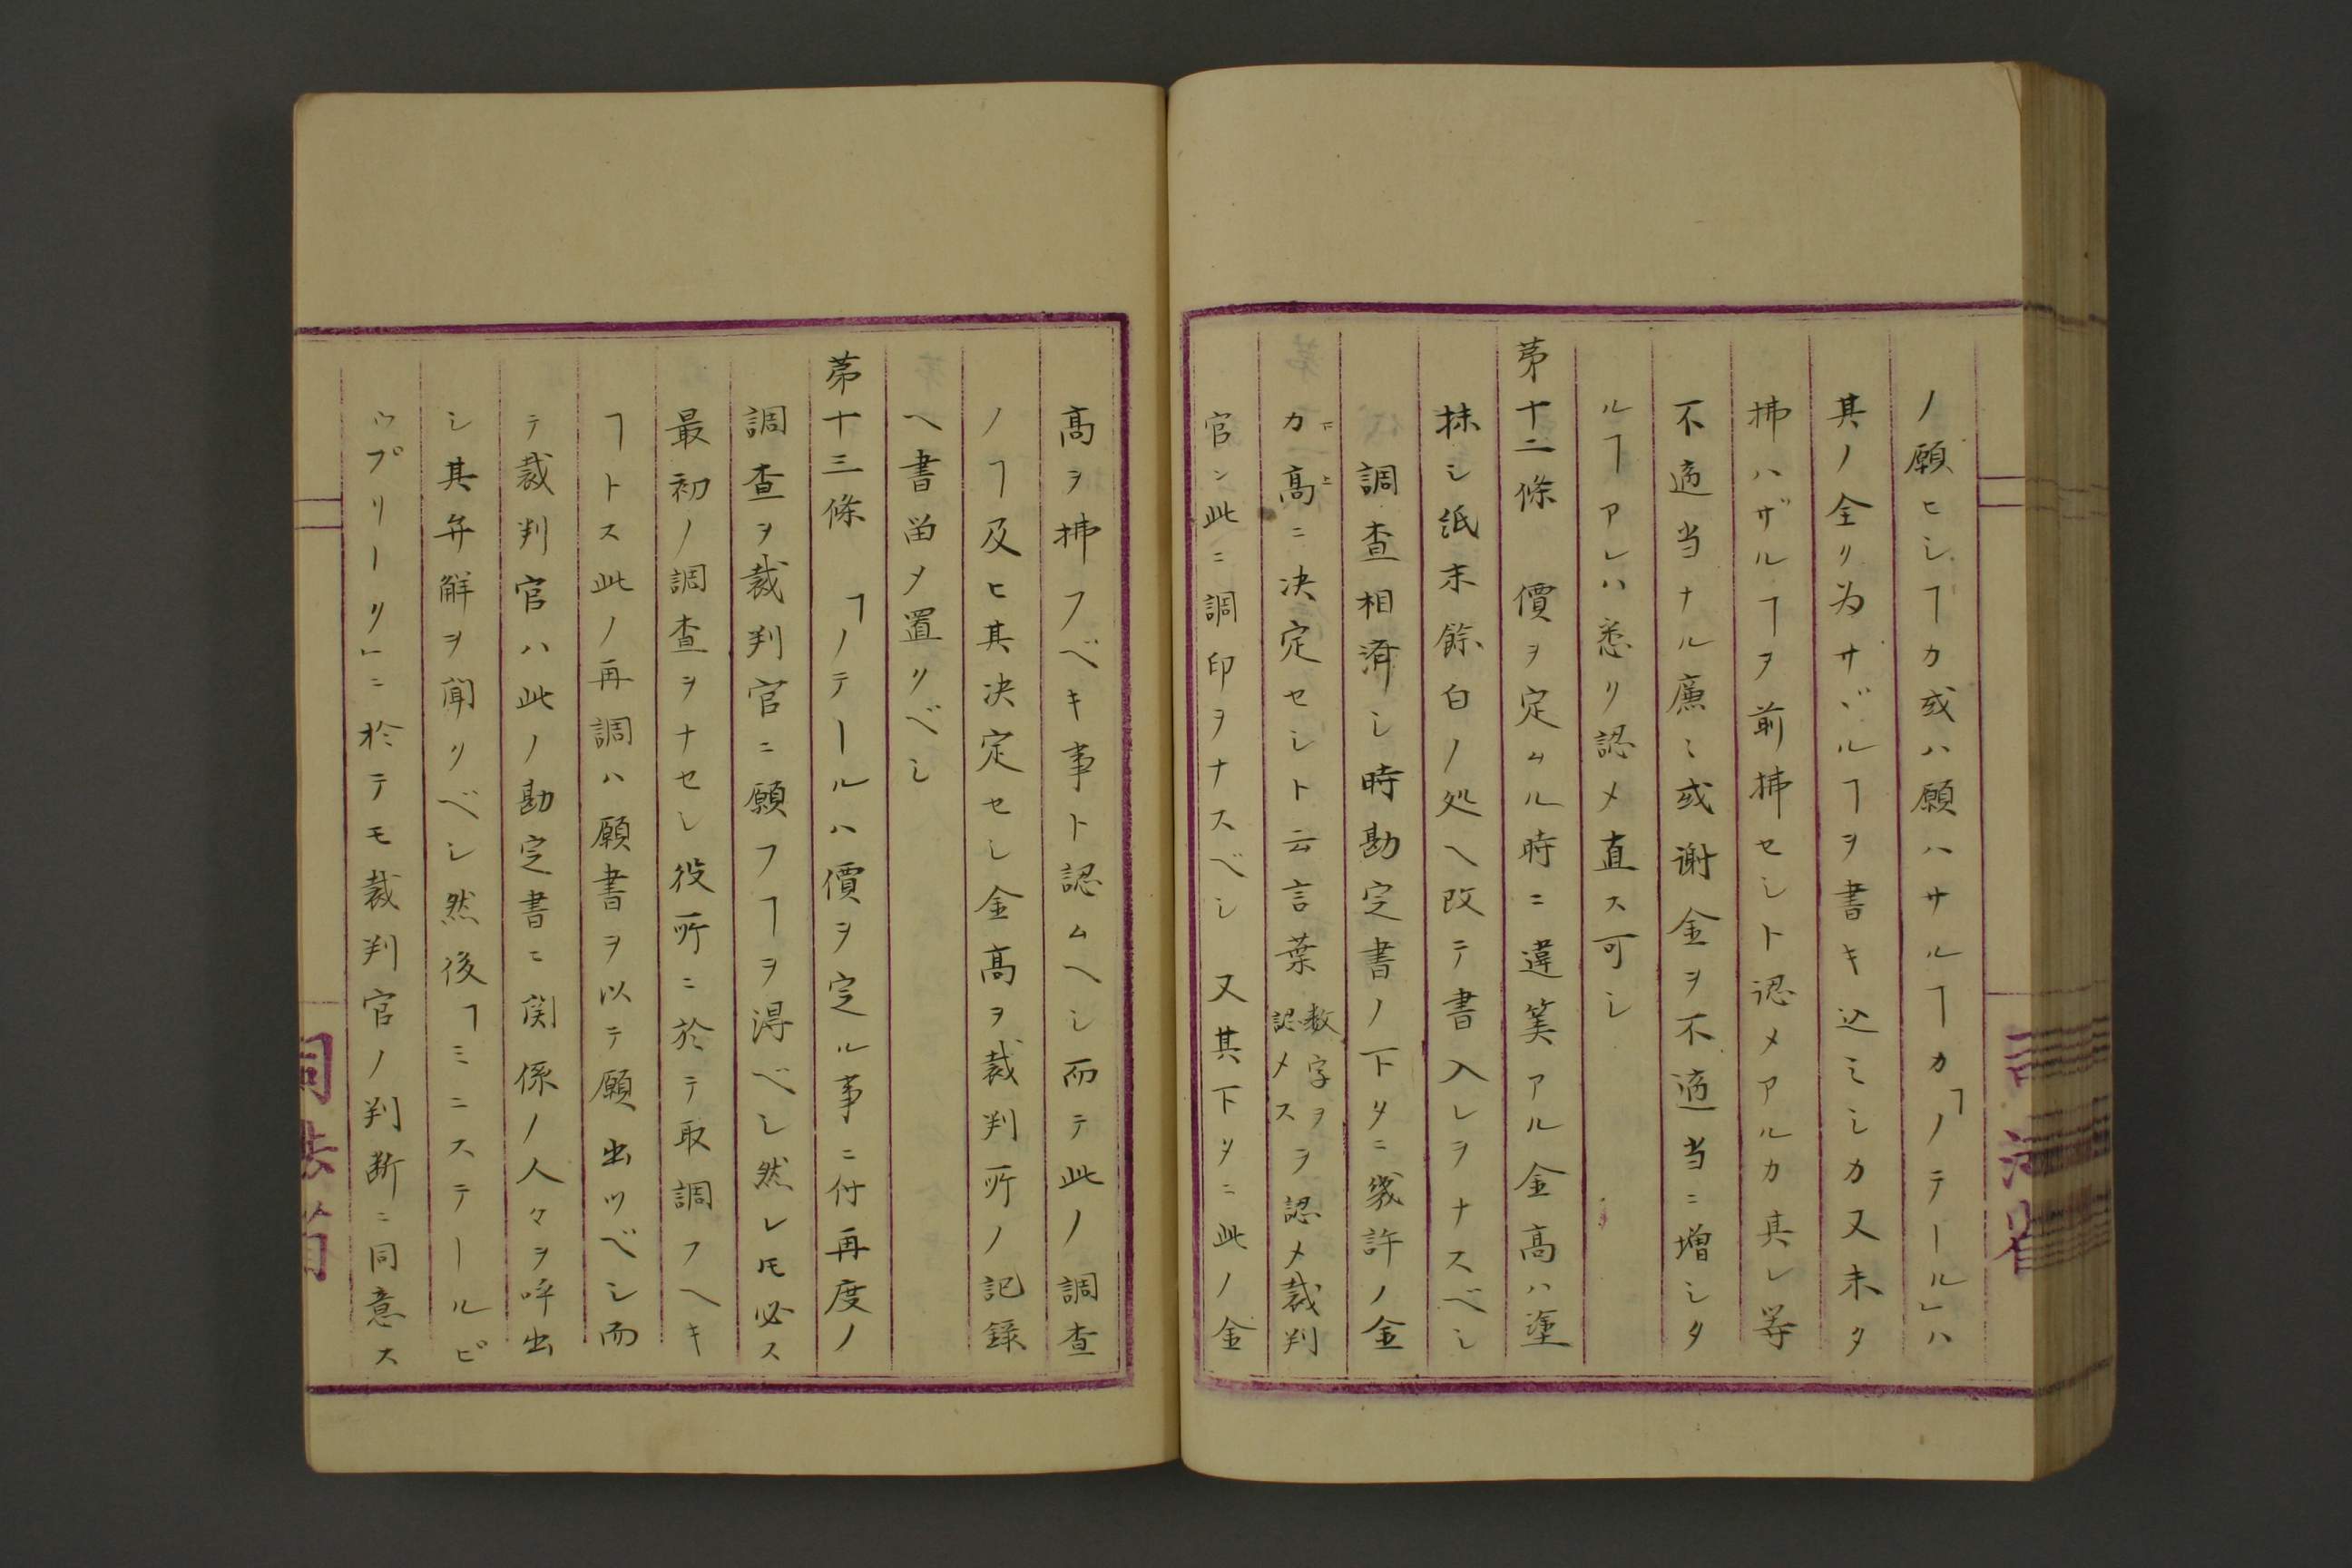 ノ願ヒシヿカ或ハ願ハサルヿカ「ノテール」ハ
其ノ全ク為サヾルヿヲ書キ込ミシカ又未タ
拂ハザルヿヲ前拂セシト認メアルカ其レ等
不適当ナル廉ミ或謝金ヲ不適当ニ増シタ
ルヿアレハ悉ク認メ直ス可シ
苐十二條 價ヲ定ムル時ニ違筭アル金高ハ塗
抹シ紙末餘白ノ処ヘ改テ書入レヲナスベシ
調査相済シ時勘定書ノ下タニ幾許ノ金
カ高ニ决定セシト云言葉数字ヲ認メスヲ認メ裁判
下上
官ン此ニ調印ヲナスベシ 又其下タニ此ノ金
髙ヲ拂フベキ事ト認ムヘシ而テ此ノ調査
ノヿ及ヒ其决定セシ金髙ヲ裁判所ノ記録
ヘ書畄メ置クベシ
苐十三條 「ノテールハ價ヲ定ル事ニ付再度ノ
調査ヲ裁判官ニ願フヿヲ得ベシ然レ𪜈必ス
最初ノ調査ヲナセシ役所ニ於テ取調フヘキ
ヿトス此ノ再調ハ願書ヲ以テ願出ツベシ而
テ裁判官ハ此ノ勘定書ニ関係ノ人々ヲ呼出
シ其弁解ヲ聞クベシ然後「ミニステールピ
ウプリーク」ニ於テモ裁判官ノ判断ニ同意ス
司法省